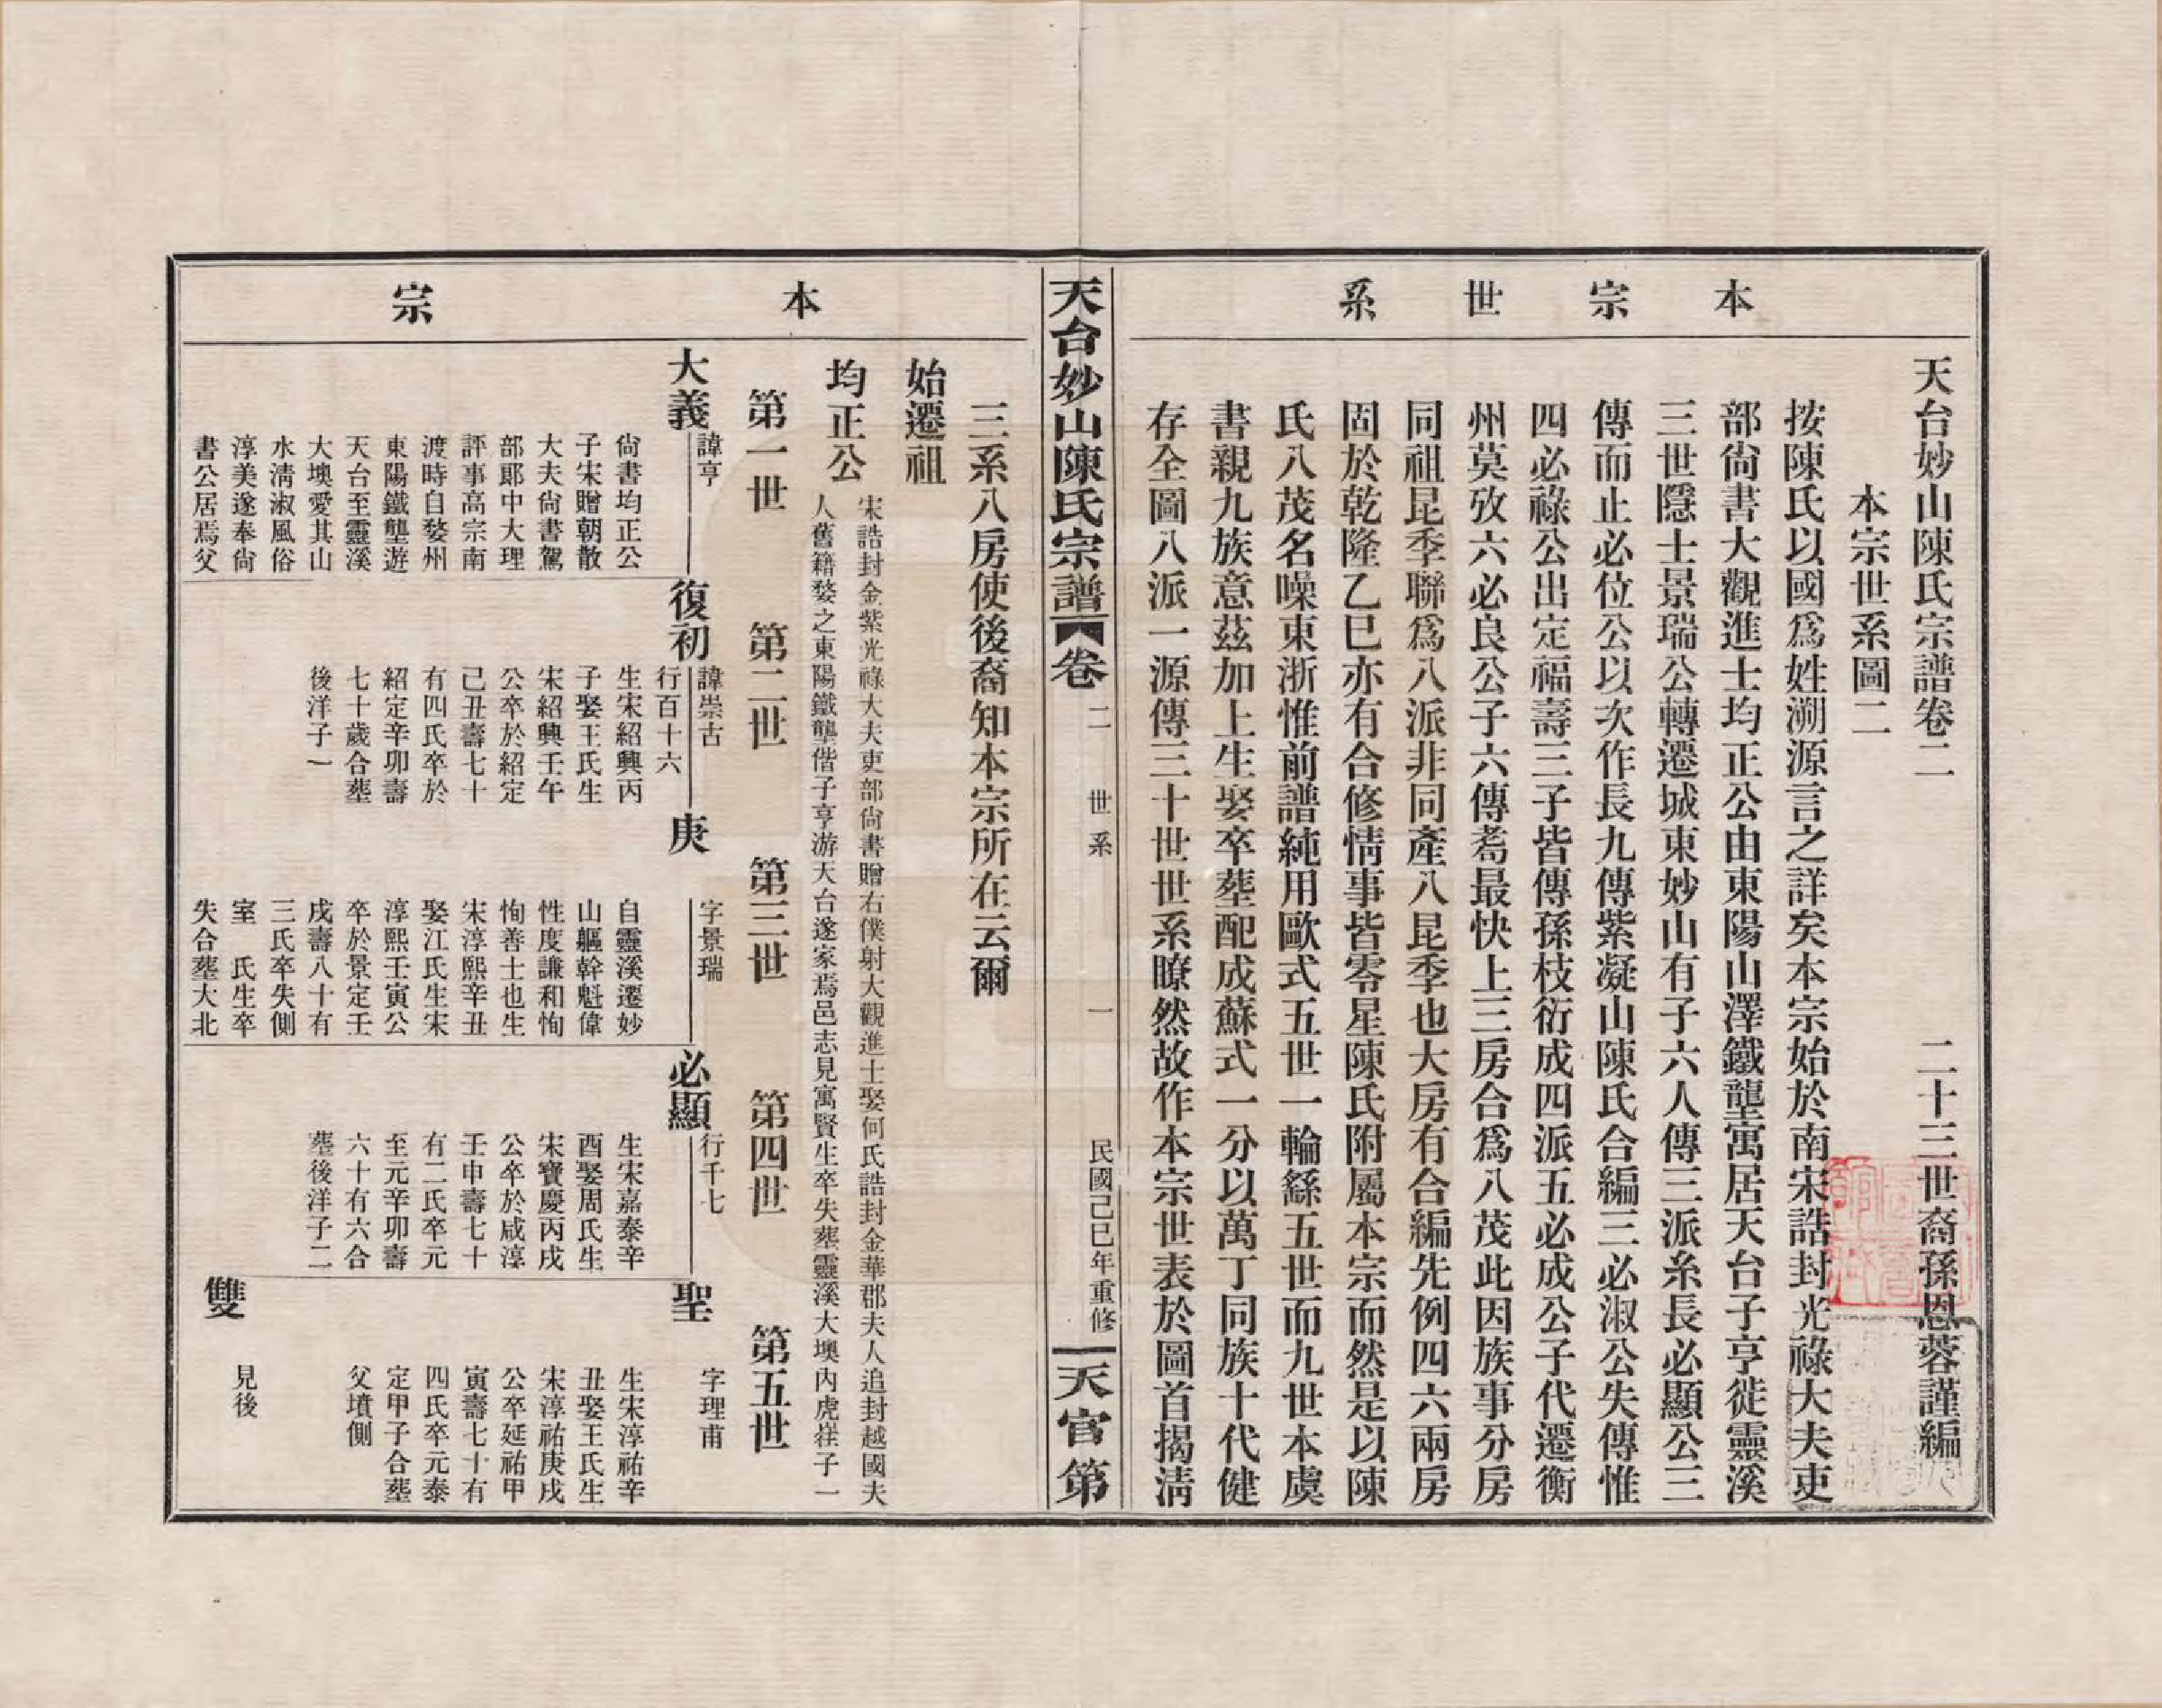 本宗世系
天台妙山陳氏宗譜卷二　二十三世裔孫恩蓉謹編
本宗世系圖二
按陳氏以國爲姓溯源言之詳矣本宗始於南宋誥封光祿大夫吏
部尙書大觀進士均正公由東陽山澤鐵壟寓居天台子亨徙靈溪
三世隱士景瑞公轉遷城東妙山有子六人傳三派糸長必顯公三
傳而止必位公以次作長九傳紫凝山陳氏合編三必淑公失傳惟
四必祿公出定福壽三子皆傳孫枝衍成四派五必成公子代遷衡
州莫攷六必良公子六傳耇最快上三房合爲八茂此因族事分房
同祖昆季聯爲八派非同產八昆季也大房有合編先例四六兩房
固於乾隆乙巳亦有合修情事皆零星陳氏附屬本宗而然是以陳
氏八茂名噪東浙惟前譜純用歐式五世一輪繇五世而九世本虞
書親九族意茲加上生娶卒塟配成蘇式一分以萬丁同族十代健
存全圖八派一源傳三十世世系瞭然故作本宗世表於圖首揭淸
天台妙山陳氏宗譜　卷二　世系　一　民國己巳年重修　天官第
本宗
三系八房使後裔知本宗所在云爾
始遷祖
均正公
宋誥封金紫光祿大夫吏部尙書贈右僕射大觀進士娶何氏誥封金華郡夫人追封越國夫
人舊籍婺之東陽鐵壟偕子亨游天台遂家焉邑志見寓賢生卒失塟靈溪大墺內虎㟁子一
第一世　第二世　第三世　第四世　第五世
大義
諱亨
尙書均正公
子宋贈朝散
大夫尙書駕
部郎中大理
評事高宗南
渡時自婺州
東陽鐵壟遊
天台至靈溪
大墺愛其山
水淸淑風俗
淳美遂奉尙
書公居焉父
復初
諱崇古
行百十六
生宋紹興丙
子娶王氏生
宋紹興壬午
公卒於紹定
己丑壽七十
有四氏卒於
紹定辛卯壽
七十歲合塟
後洋子一
庚
字景瑞
自靈溪遷妙
山軀幹魁偉
性度謙和恂
恂善士也生
宋淳熙辛丑
娶江氏生宋
淳熙壬寅公
卒於景定壬
戌壽八十有
三氏卒失側
室　氏生卒
失合塟大北
必顯
行千七
生宋嘉泰辛
酉娶周氏生
宋寶慶丙戌
公卒於咸淳
壬申壽七十
有二氏卒元
至元辛卯壽
六十有六合
塟後洋子二
聖
字理甫
生宋淳祐辛
丑娶王氏生
宋淳祐庚戌
公卒延祐甲
寅壽七十有
四氏卒元泰
定甲子合塟
父墳側
雙
見後